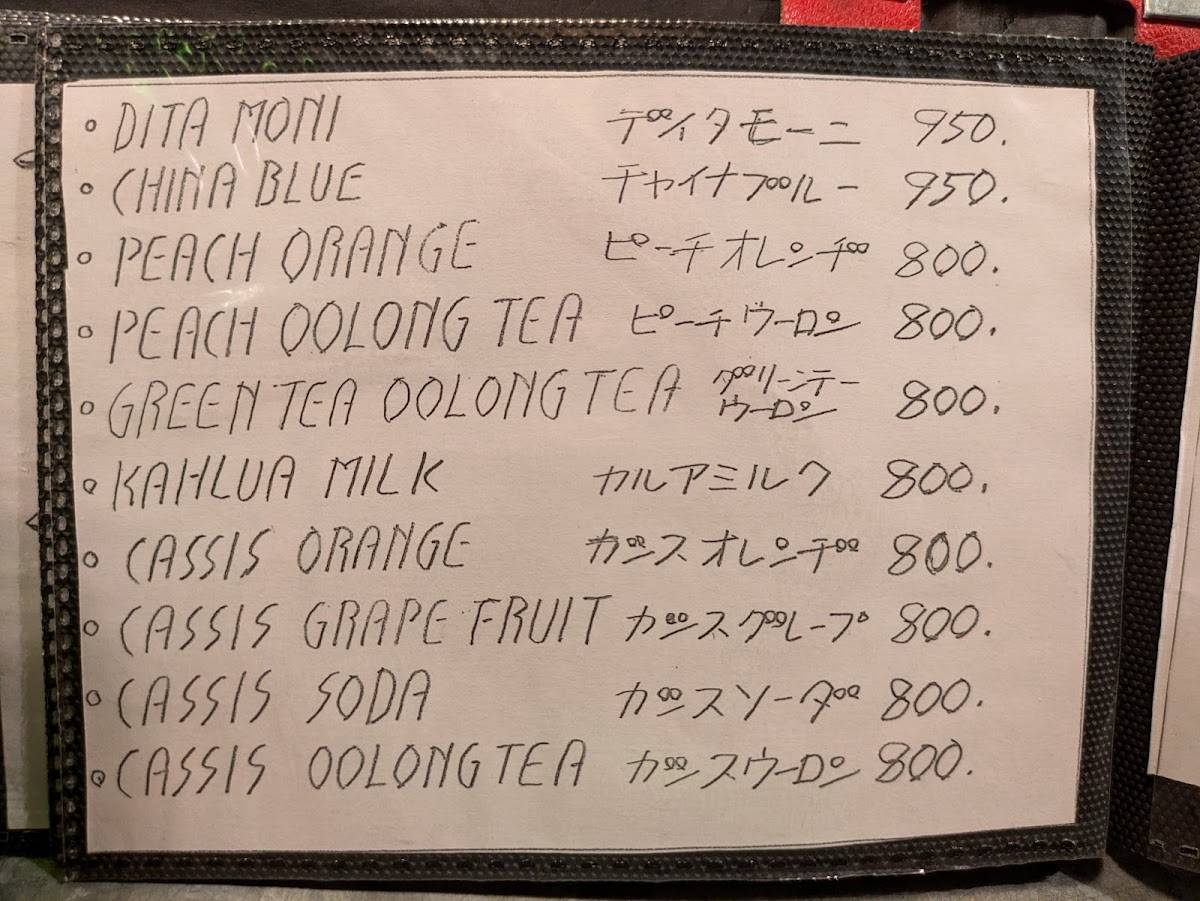 DITA MONI ディタモーニ 950.
CHINA BLUE チャイナブルー 950.
PEACH ORANGE ピーチオレンヂ 800.
PEACH OOLONG TEA ピーチウーロン 800.
GREEN TEA OOLONG TEA グリーンテー 800.
ウーロン
KAHLUA MILK カルアミルク 800.
CASSIS ORANGE カシスオレンヂ 800.
CASSIS GRAPE FRUIT カシスグレープ 800.
CASSIS SODA カシスソーダ 800.
CASSIS OOLONG TEA カシスウーロン 800.